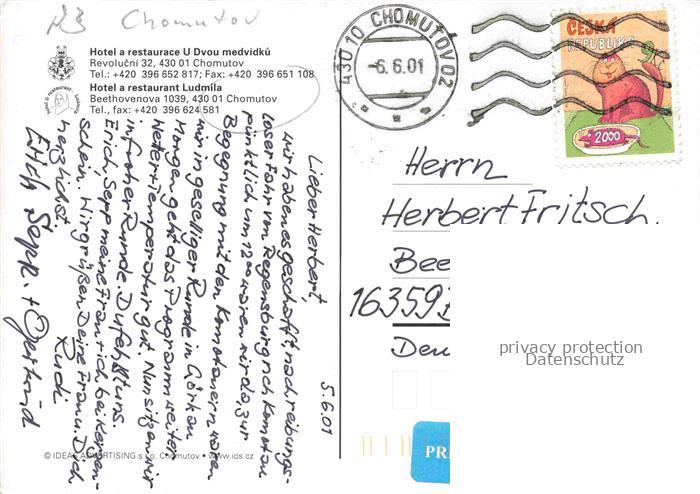 Chomutov
Hotel a restaurace U Dvou medvídků
Revoluční 32, 430 01 Chomutov
Tel.: +420 396 652 817; Fax: +420 396 651 108
Hotel a restaurant Ludmila
Beethovenova 1039, 430 01 Chomutov
Tel., fax: +420 396 624 581
5.6.01
Lieber Herbert,
wir haben es geschafft nach reibungs-
loser Fahr von Regensburg nch Komotau
pünktlich um 1200 waren wir da, zur
Begegnung mit den Komotauern waren
wir in geselliger Runde in Görkau
Morgen geht das Programm weiter
Wetter Temperatur gut. Nun sitzen wir
in froher Runde. Du fehlst uns.
Erich, Sepp meine Frau + ich bei Kerzen-
schein. Wir grüßen Deine Frau u. Dich
herzlichst.
Rudi
Erich Sepp. + Gertrud
© IDEAL ADVERTISING s.r.o. Chomutov • www.ids.cz
430 10 CHOMUTOV 02
-6.6.01
ČESKÁ
REPUBLIKA
2000
Herrn
Herbert Fritsch.
Bee
16359
Deu
privacy protection
Datenschutz
PRI